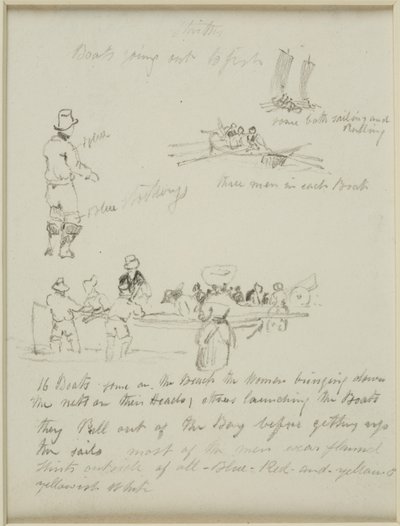 Boats going out to fish
some both sailing and
Pulling
Blue
Blue Stockings
three men in each Boat
16 Boats some on the Beach the Women bringing down
the nets on their Heads, others launching the Boats
they Pull out of the Bay before getting up
the sails most of the men wear flannel
shirts outside of all - Blue - Red - and - yellow &
yellowish White